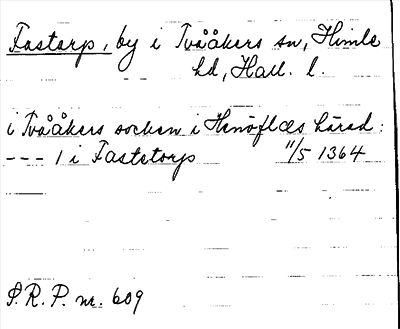 Fastarp, by i Tvååkers sn, Himle
hd, Hall. l.
i Tvååkers socken i Henöflæs härad:
--- 1 i Fastetorp 11/5 1364
S.R.P. nr. 609